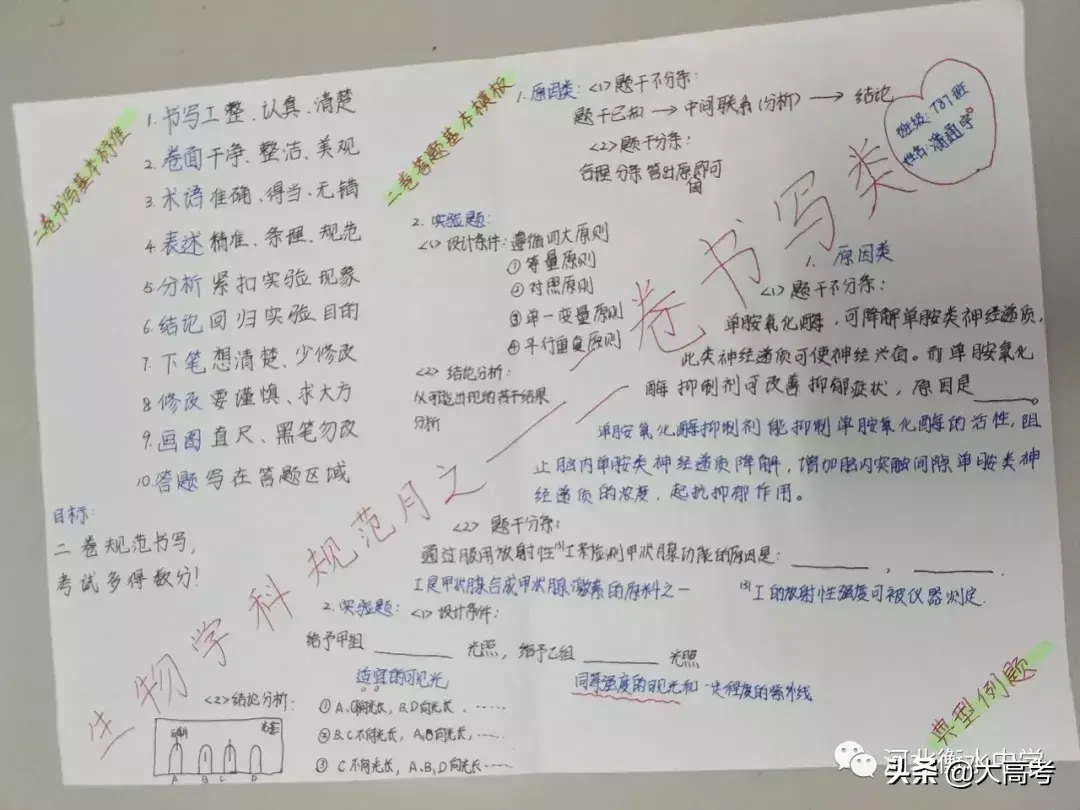 二卷书写基本标准
1. 书写工整、认真、清楚
2. 卷面干净、整洁、美观
3. 术语准确、得当、无错
4. 表述精准、条理、规范
5. 分析紧扣实验现象
6. 结论回归实验目的
7. 下笔想清楚、少修改
8. 修改要谨慎、求大方
9. 画图直尺、黑笔勿改
10. 答题写在答题区域
目标:
二卷规范书写,
考试多得数分!
二卷答题基本模板
1. 原因类: <1> 题干不分条:
题干已知 → 中间联系(分析) → 结论
<2> 题干分条:
合理分条答出原即可
因
2. 实验题:
<1> 设计条件: 遵循四大原则
① 等量原则
② 对照原则
③ 单一变量原则
④ 平行重复原则
<2> 结论分析:
从可能出现的若干结果
分析
班级: 787班
姓名: 潘通宇
生物学科规范月之——卷书写类
1. 原因类
<1> 题干不分条:
单胺氧化酶,可降解单胺类神经递质,
此类神经递质可使神经兴奋。而单胺氧化
酶抑制剂可改善抑郁症状,原因是______。
单胺氧化酶抑制剂能抑制单胺氧化酶的活性,阻
止脑内单胺类神经递质降解,增加脑内突触间隙单胺类神
经递质的浓度,起抗抑郁作用。
<2> 题干分条:
通过服用放射性131I来检测甲状腺功能的原因是: ______ , ______.
I是甲状腺合成甲状腺激素的原料之一 131I的放射性强度可被仪器测定.
2. 实验题: <1> 设计条件:
给予甲组______光照, 给予乙组______光照
适宜的可见光 同等强度的可见光和一定程度的紫外线
<2> 结论分析:
A B C D
① A、C弯向光长, B、D向光长, ……
② B、C不向光长, A、D向光长, ……
③ C不向光长, A、B、D向光长……
典型例题
河北衡水中学
头条 @大高考